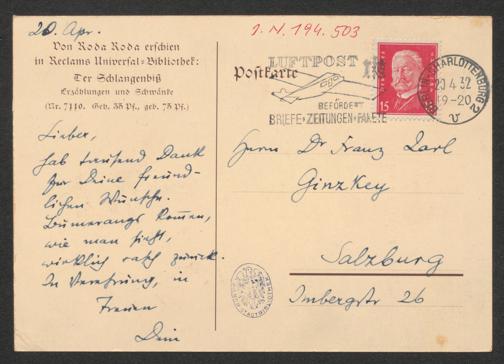 20. Apr.
Von Roda Roda erschien
in Reclams Universal-Bibliothek:
Der Schlangenbiß
Erzählungen und Schwänke
(Nr. 7140. Geh. 35 Pf., geb. 75 Pf.)
Lieber,
hab tausend Dank
für Deine freund-
lichen Wünsche.
Bumerangs kommen,
wie man sieht,
wirklich rasch zurück.
In Verehrung, in
Treuen
Dein
I. N. 194.503
Postkarte
LUFTPOST
BEFÖRDERT
BRIEFE·ZEITUNGEN·PAKETE
15
BERLIN-CHARLOTTENBURG 2
20.4.32
19-20
Herrn Dr Franz Karl
Ginzkey
Salzburg
Imbergstr 26